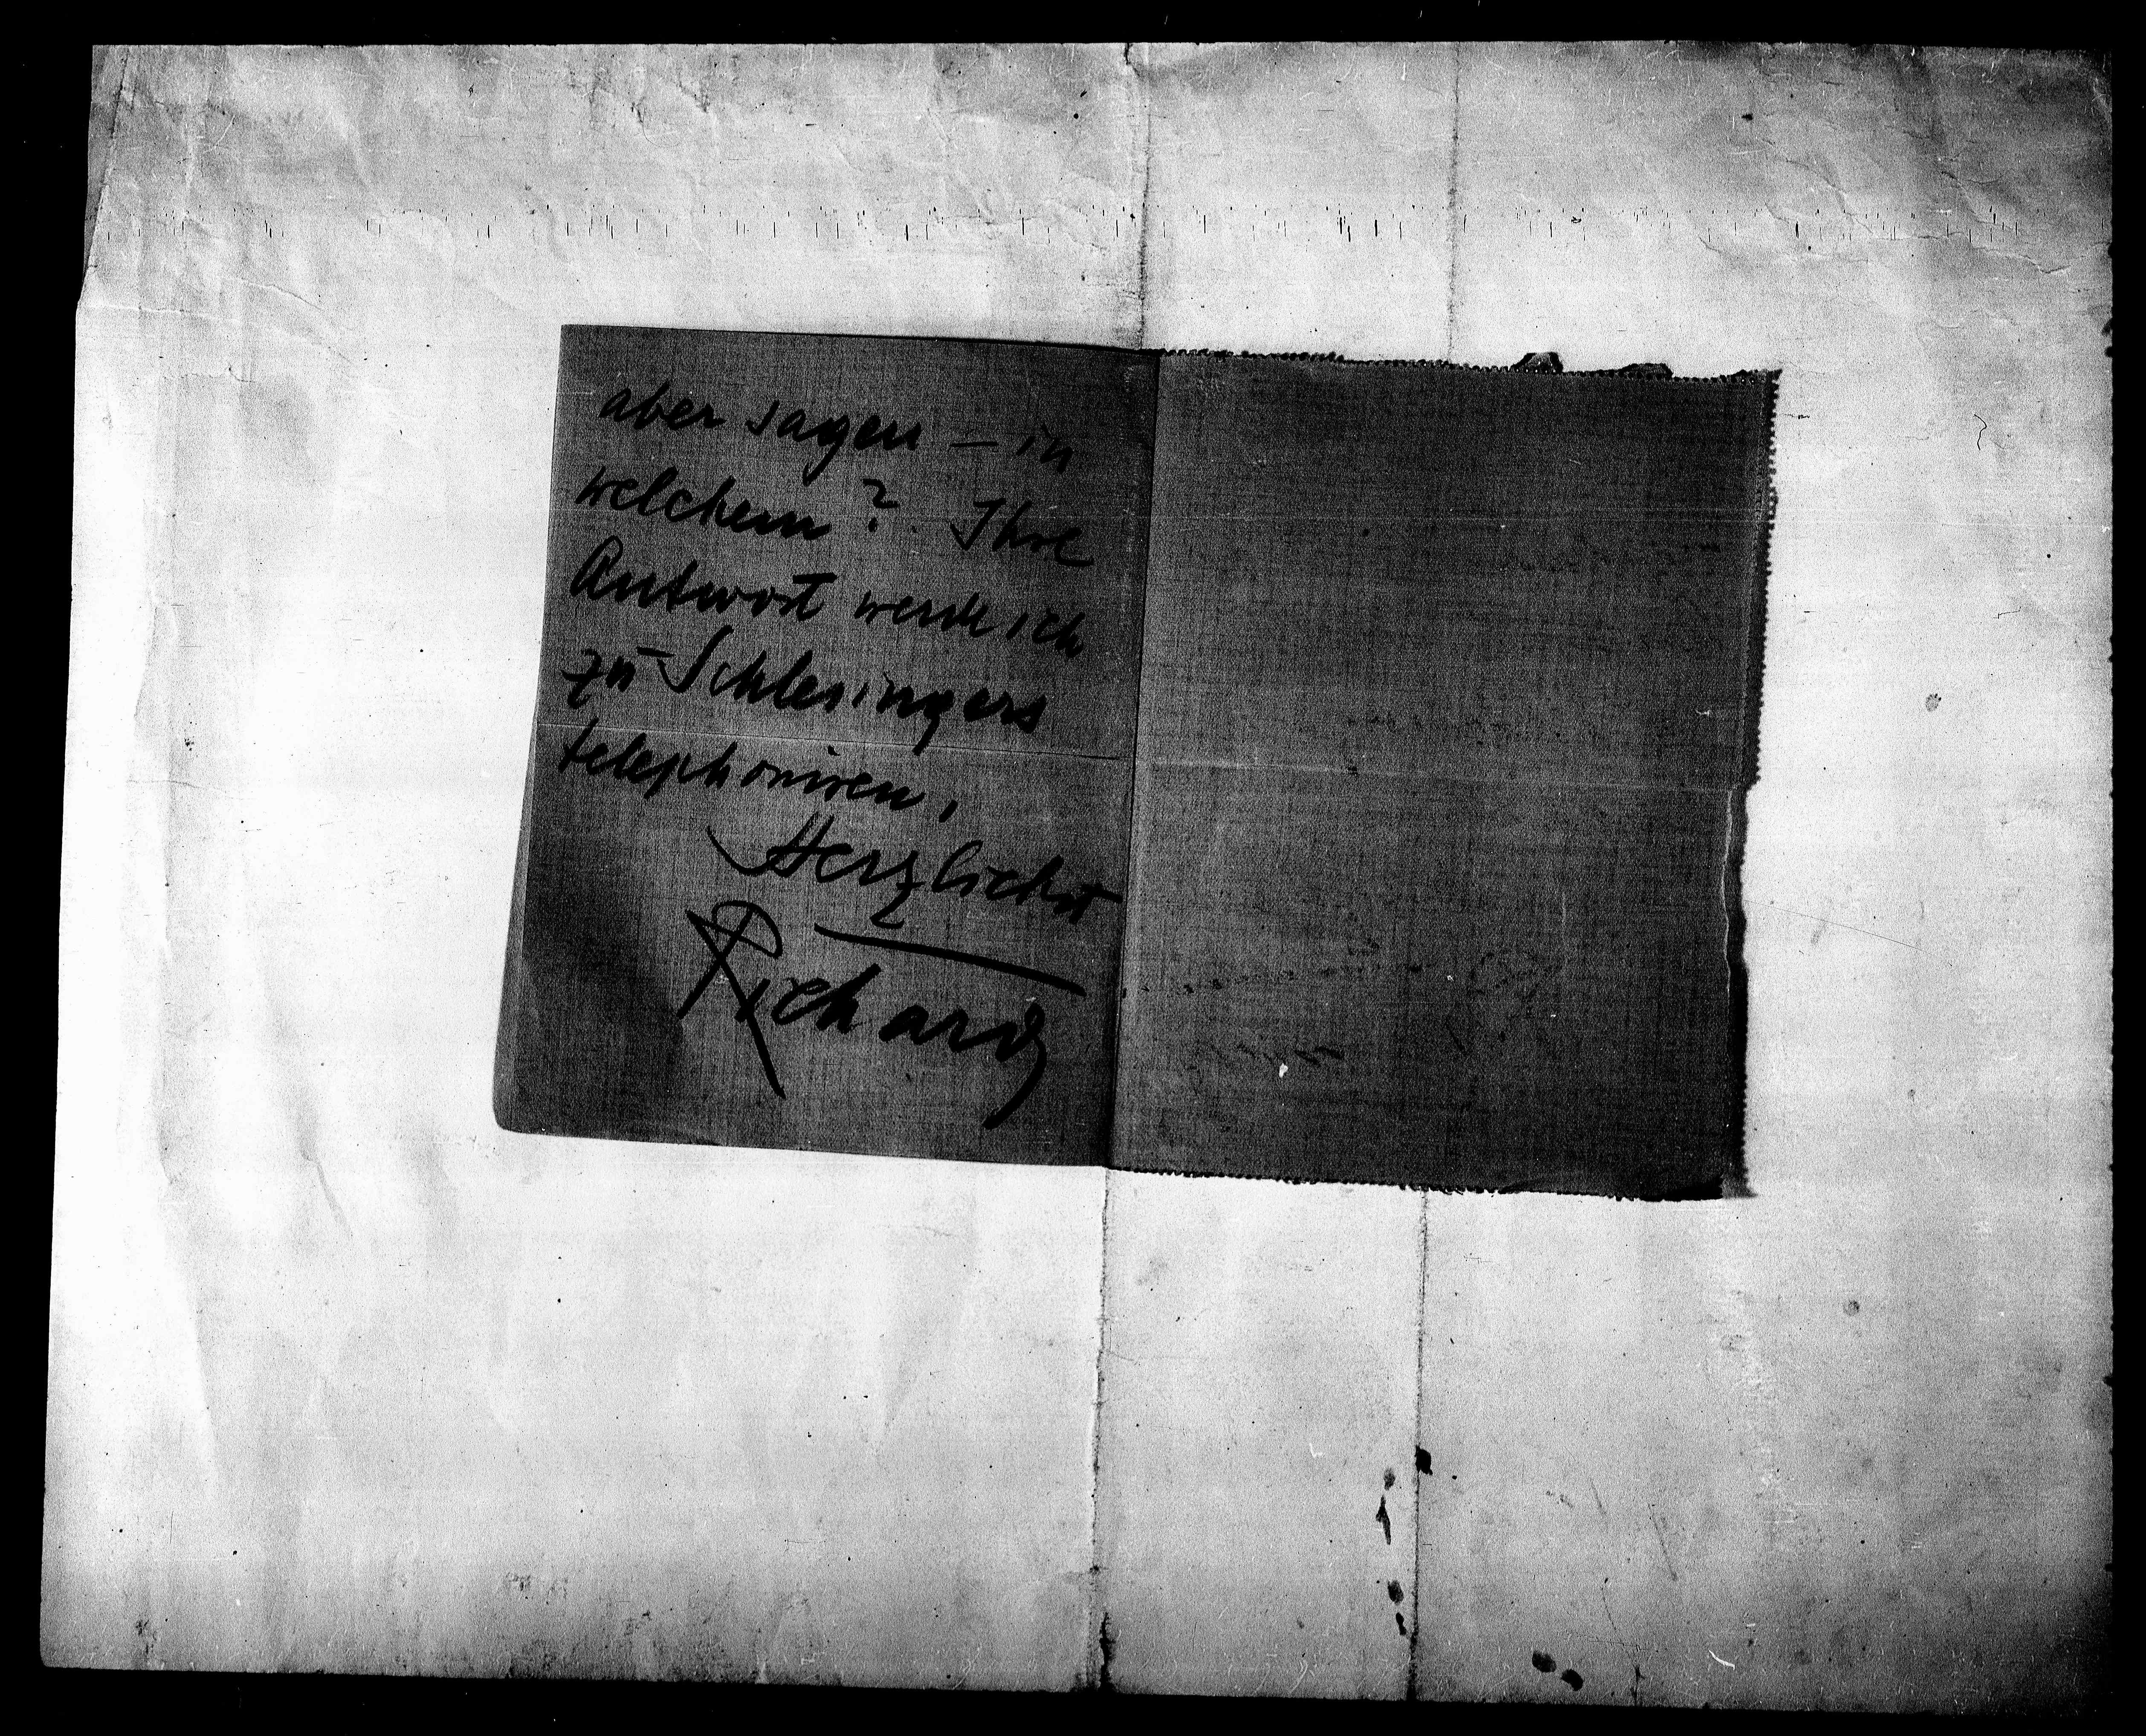 aber sagen – in
welchem? Ihre
Antwort werde ich
zu Schlesingers
telephoniren,
Herzlichst
Richard